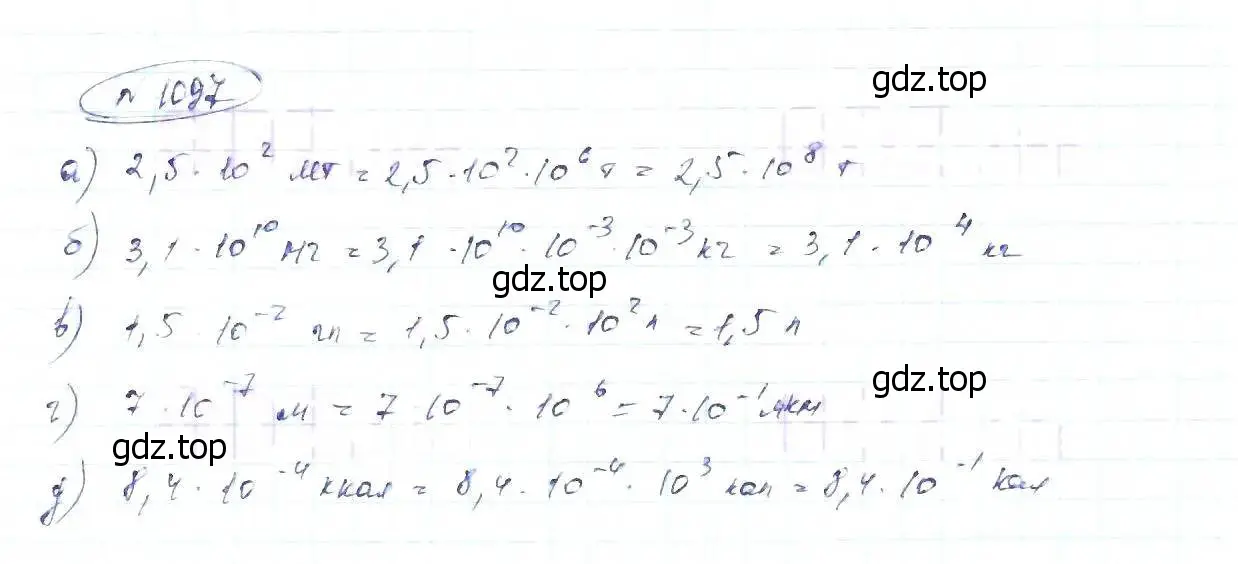 № 1097
gdz.top
а) 2,5 · 10² Мт = 2,5 · 10² · 10⁶ т = 2,5 · 10⁸ т
б) 3,1 · 10¹⁰ мг = 3,1 · 10¹⁰ · 10⁻³ · 10⁻³ кг = 3,1 · 10⁴ кг
gdz.top
в) 1,5 · 10⁻² гл = 1,5 · 10⁻² · 10² л = 1,5 л
gdz.top
г) 7 · 10⁻⁷ м = 7 · 10⁻⁷ · 10⁶ = 7 · 10⁻¹ мкм
gdz.top
д) 8,4 · 10⁻⁴ ккал = 8,4 · 10⁻⁴ · 10³ кал = 8,4 · 10⁻¹ кал
gdz.top